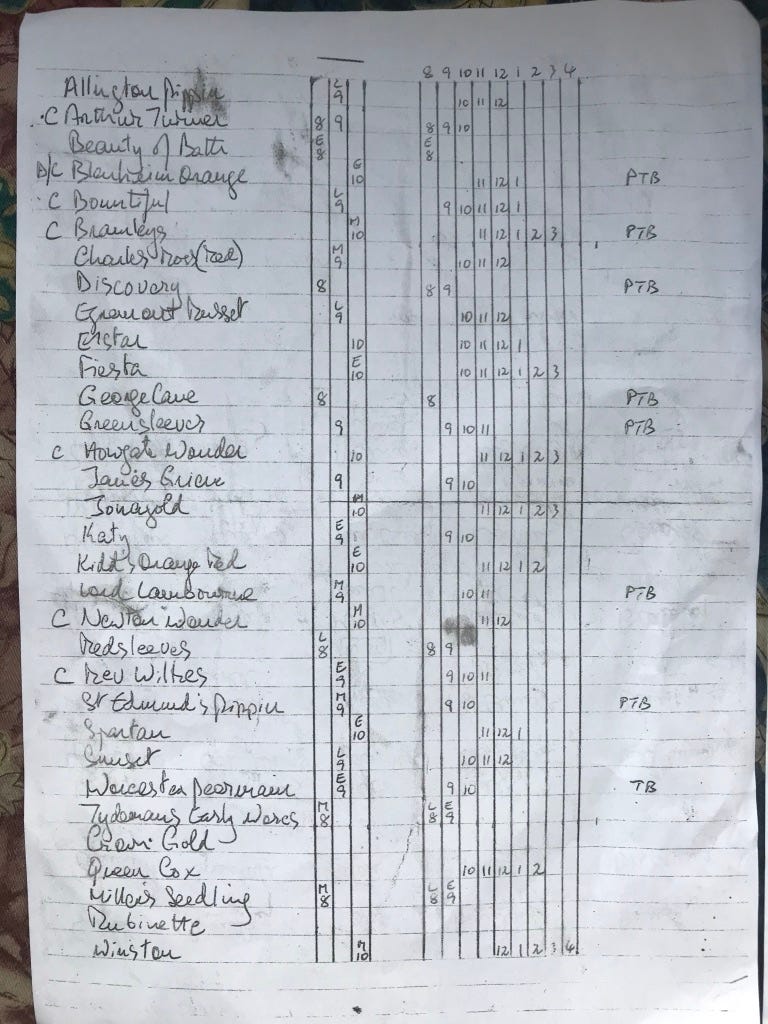 8 9 10 11 12 1 2 3 4
Allington Pippin L 9 10 11 12
C Arthur Turner 8 9 8 9 10
Beauty of Bath E 8 E 8
D/C Blenheim Orange E 10 11 12 1 PTB
C Bountiful L 9 9 10 11 12 1
C Bramleys M 10 11 12 1 2 3 PTB
Charles Ross (Red) M 9 10 11 12
Discovery 8 8 9 PTB
Egremont Russet L 9 10 11 12
Elstar 10 10 11 12 1
Fiesta E 10 10 11 12 1 2 3
George Cave 8 8 PTB
Greensleeves 9 9 10 11 PTB
C Howgate Wonder 10 11 12 1 2 3
James Grieve 9 9 10
Jonagold M 10 11 12 1 2 3
Katy E 9 9 10
Kidd's Orange Red E 10 11 12 1 2
Lord Lambourne M 9 10 11 PTB
C Newton Wonder M 10 11 12
Redsleeves L 8 8 9
C Rev Wilkes E 9 9 10 11
St Edmund's Pippin M 9 9 10 PTB
Spartan E 10 11 12 1
Sunset L 9 10 11 12
Worcester Pearmain E 9 9 10 TB
Tydemans Early Worcs M 8 L 8 E 9
Crown Gold
Queen Cox 10 11 12 1 2
Millers Seedling M 8 L 8 E 9
Rubinette
Winston M 10 12 1 2 3 4